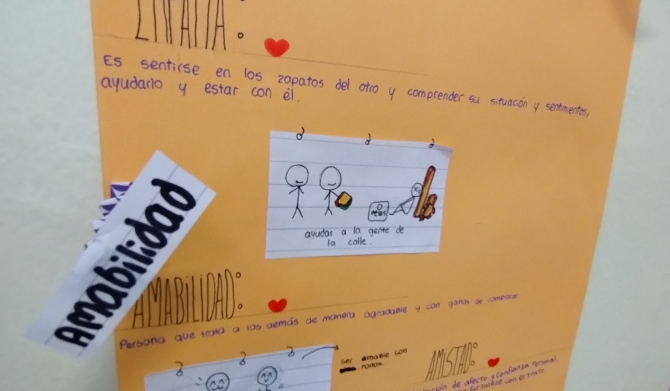 EMPATÍA:
Es sentirse en los zapatos del otro y comprender su situación y sentimientos,
ayudarlo y estar con él.
ayudar a la gente de
la calle.
Amabilidad
AMABILIDAD:
Persona que trata a los demás de manera agradable y con ganas de
ser amable con
todos.
AMISTAD:
de afecto y confianza personal,